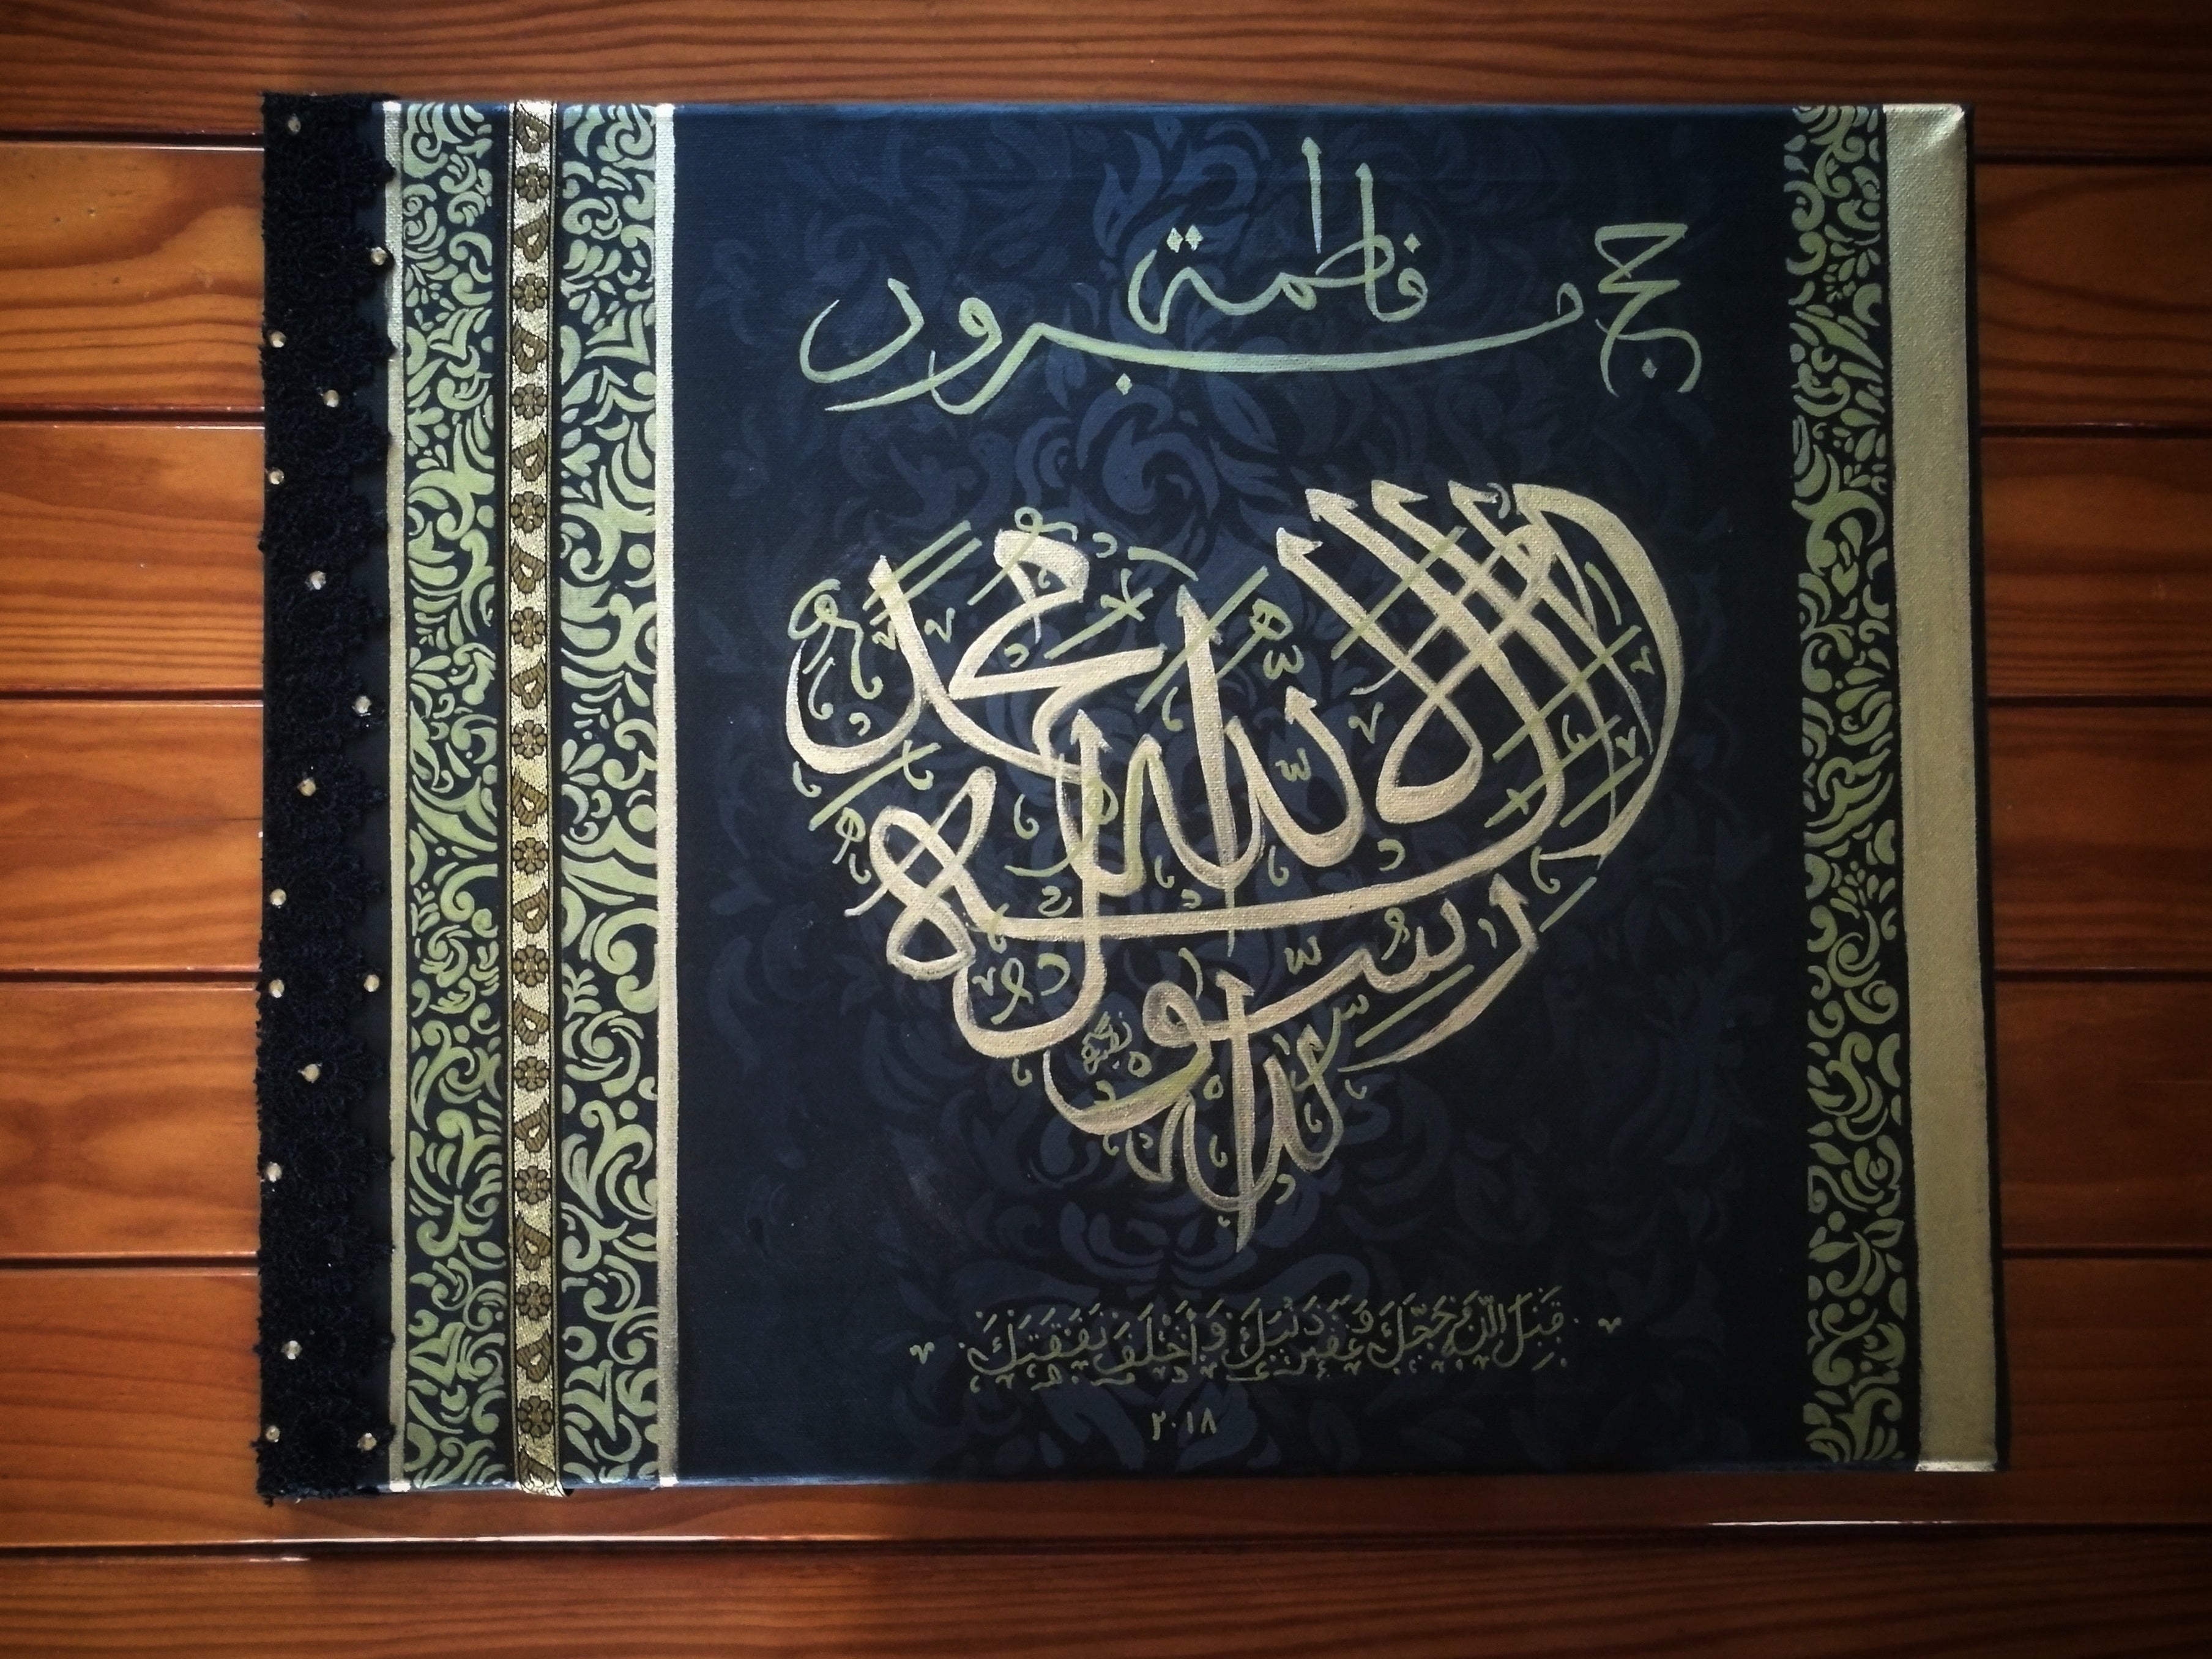 حج مبرور
فاطمة
لا إله إلا الله محمد
رسول الله
قَبِلَ اللَّهُ حَجَّكَ وَغَفَرَ ذَنْبَكَ وَأَخْلَفَ نَفَقَتَكَ
٢٠١٨